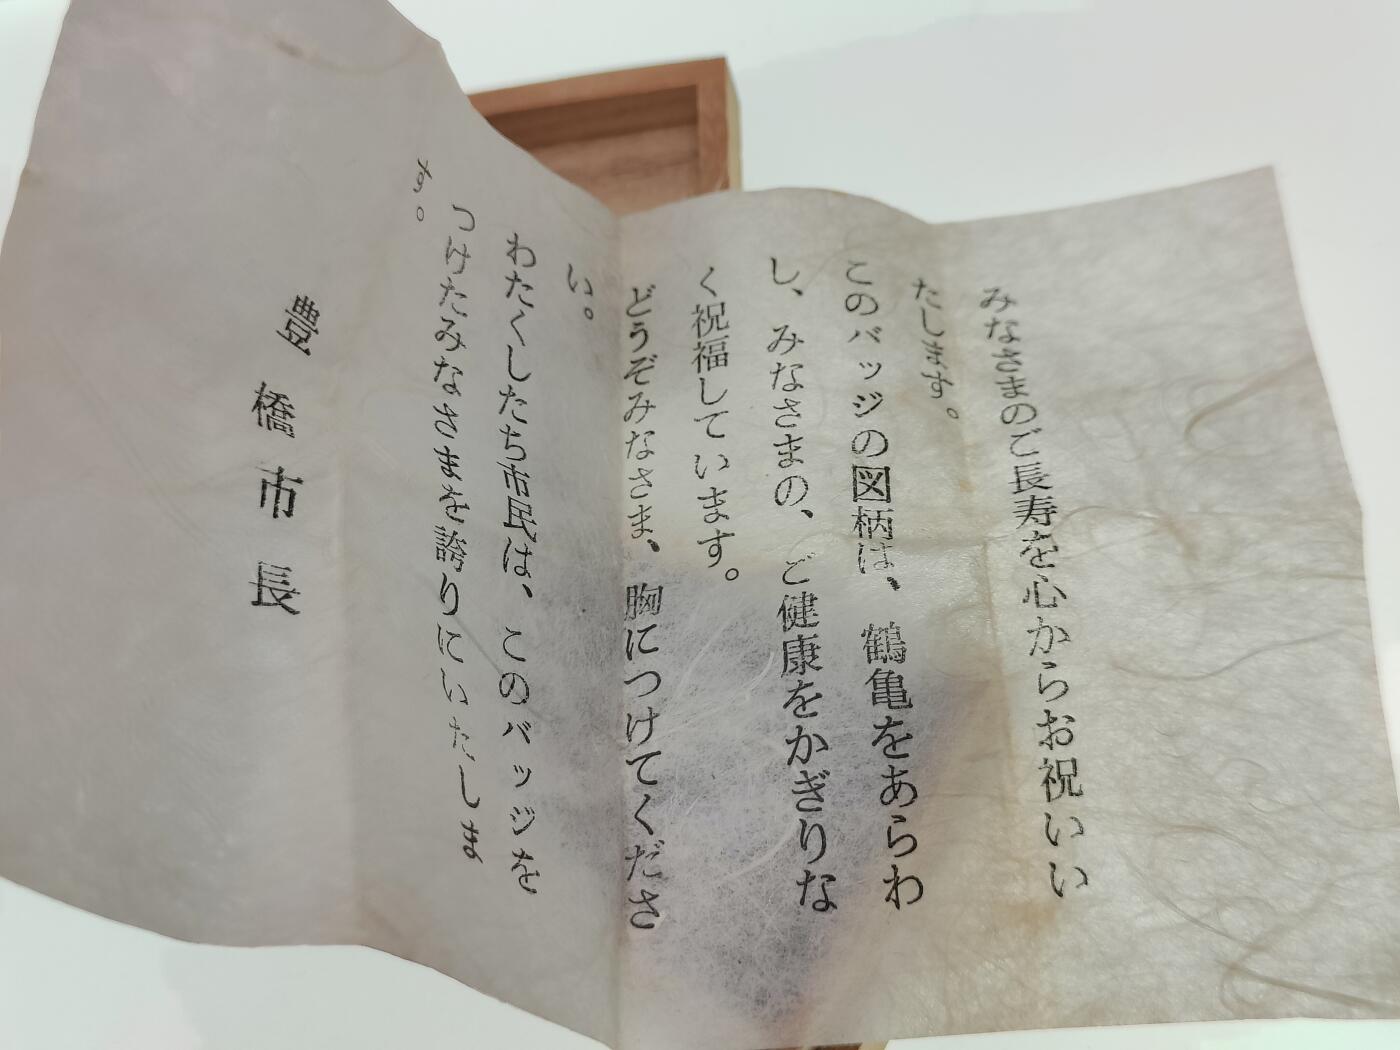 みなさまのご長寿を心からお祝いい
たします。
このバッジの図柄は、鶴亀をあらわ
し、みなさまの、ご健康をかぎりな
く祝福しています。
どうぞみなさま、胸につけてくださ
い。
わたくしたち市民は、このバッジを
つけたみなさまを誇りにいたしま
す。
豊橋市長